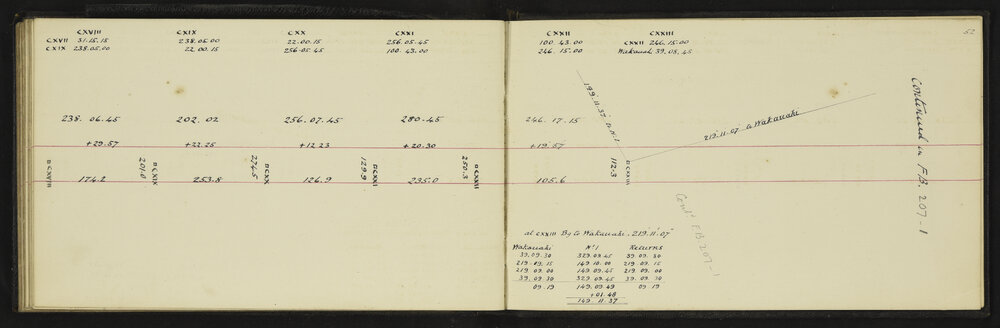 CXVIII
CXVII 31.15.15
CXIX 238.05.00
CXIX
238.05.00
22.00.15
CXX
22.00.15
256.05.45
CXXI
256.05.45
100.43.00
238.06.45 202.02 256.07.45 280.45
+29.57 +22.25 +12.23 +20.30
CXVIII 174.2 201.0 CXIX 253.8 274.5 CXX 126.9 129.9 CXXI 235.0 250.3 CXXII
52
CXXII
100.43.00
246.15.00
CXXIII
CXXII 246.15.00
Wakanaki 39.08.45
246.17.15
+19.57
105.6 112.3 CXXIII
219.11.07 to Wakanaki
Continued in F.B. 207-1
Contd F.B 207-1
at CXXIII By to Wakanaki. 219.11.07
Wakanaki No 1 Returns
39.09.30 329.09.45 39.09.30
219.09.15 149.10.00 219.09.15
219.09.00 149.09.45 219.09.00
39.09.30 329.09.45 39.09.30
09.19 149.09.49 09.19
+01.48
149.11.37